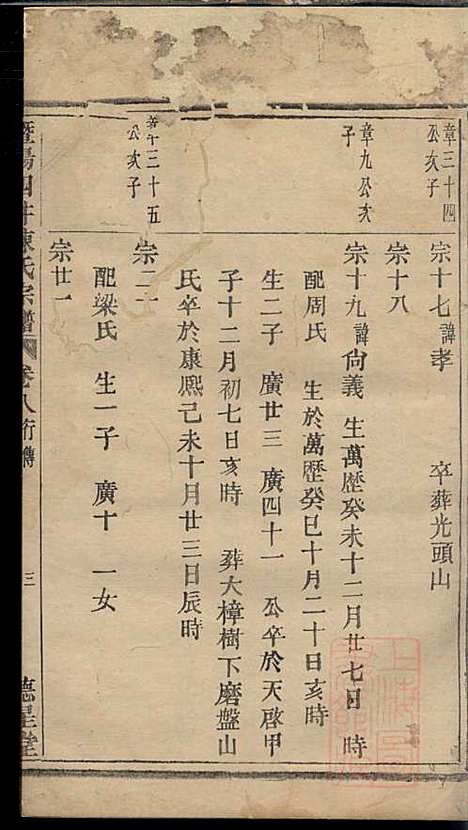 章三十四
公次子
宗十七諱孝 卒葬光頭山
宗十八
章九公次
子
宗十九諱尙義 生萬歷癸未十二月廿七日 時
配周氏 生於萬歷癸巳十月二十日亥時
生二子 廣廿三 廣四十一 公卒於天啓甲
子十二月初七日亥時 葬大樟樹下磨盤山
氏卒於康熙己未十月廿三日辰時
章三十五
公次子
宗二十
配梁氏 生一子 廣十 一女
宗廿一
暨陽 陳氏宗譜 卷八行傳 三 德星堂